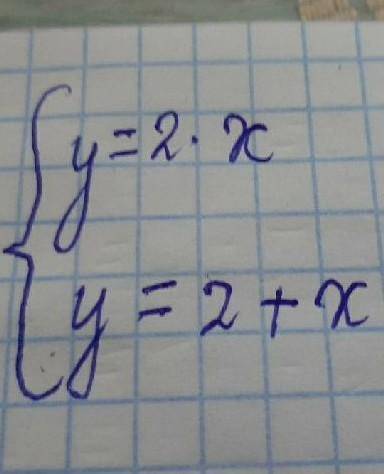 y = 2 · x
y = 2 + x